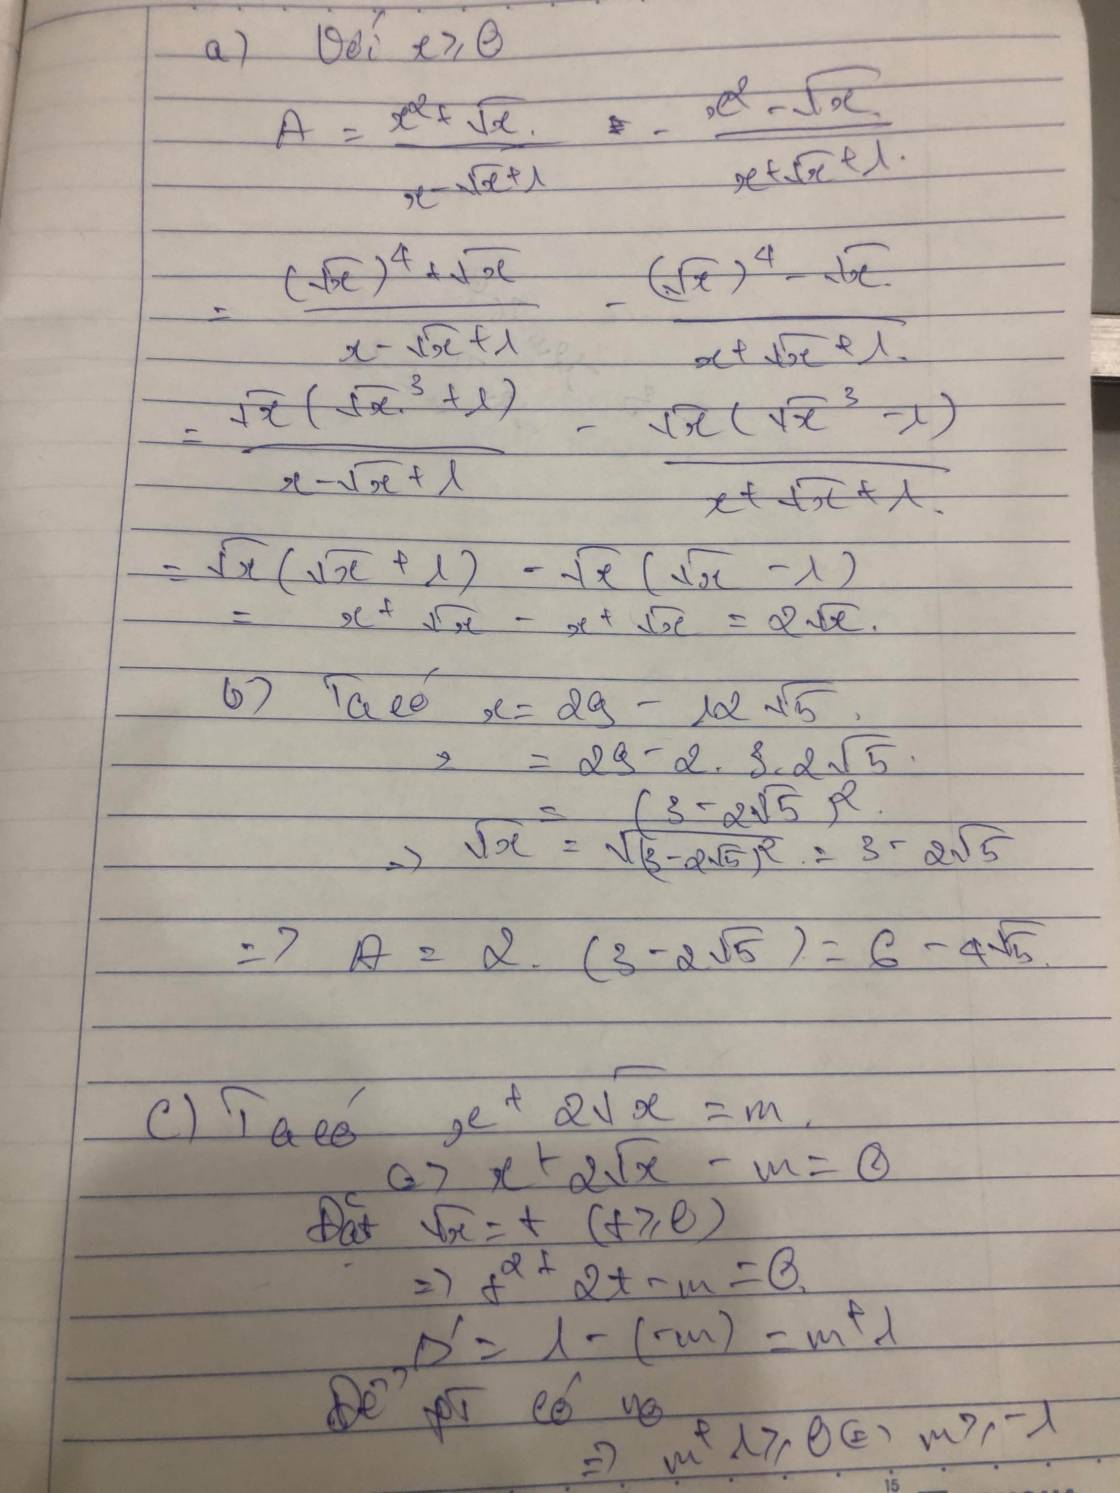 a) Với x ≥ 0
A = (x² + √x) / (x - √x + 1) - (x² - √x) / (x + √x + 1).
= ((√x)⁴ + √x) / (x - √x + 1) - ((√x)⁴ - √x) / (x + √x + 1).
= √x(√x³ + 1) / (x - √x + 1) - √x(√x³ - 1) / (x + √x + 1).
= √x(√x + 1) - √x(√x - 1)
= x + √x - x + √x = 2√x.
b) Ta có x = 29 - 12√5.
= 29 - 2.3.2√5.
= (3 - 2√5)².
=> √x = √(3 - 2√5)² = 3 - 2√5
=> A = 2.(3 - 2√5) = 6 - 4√5.
c) Ta có x + 2√x = m.
<=> x + 2√x - m = 0
Đặt √x = t (t ≥ 0)
=> t² + 2t - m = 0.
Δ' = 1 - (-m) = m + 1
Để pt có no
=> m + 1 ≥ 0 <=> m ≥ -1
15